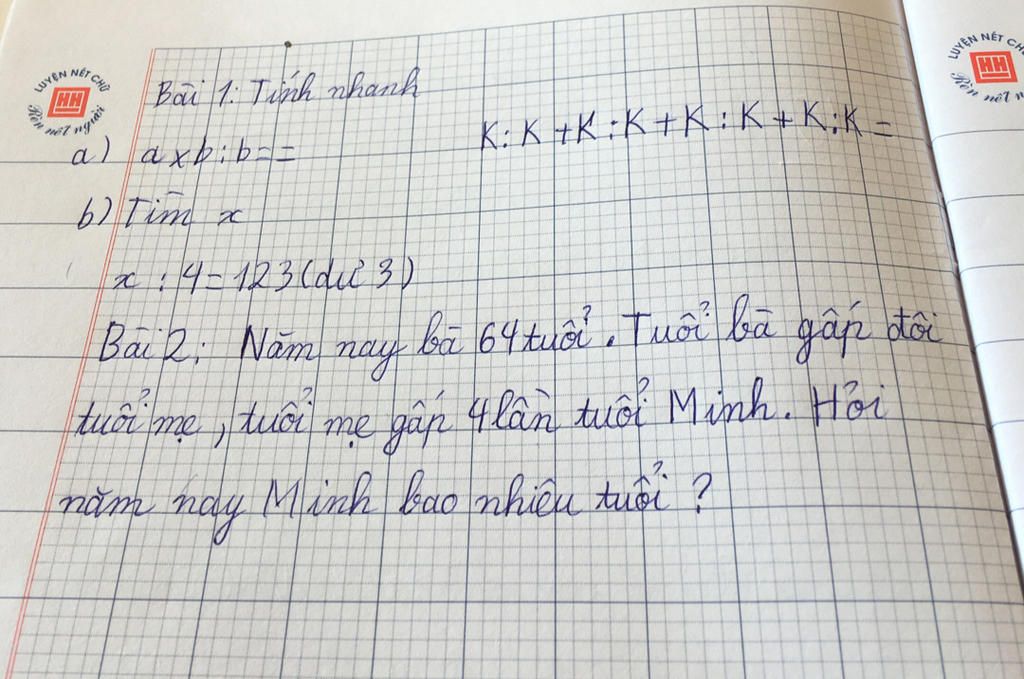 LUYỆN NÉT CHỮ
HH
Rèn nết người
LUYỆN NÉT CH
HH
Rèn nết n
Bài 1: Tính nhanh
a) a x b : b = =
K : K + K : K + K : K + K : K =
b) Tìm x
x : 4 = 123 (dư 3)
Bài 2: Năm nay bà 64 tuổi. Tuổi bà gấp đôi
tuổi mẹ, tuổi mẹ gấp 4 lần tuổi Minh. Hỏi
năm nay Minh bao nhiêu tuổi?